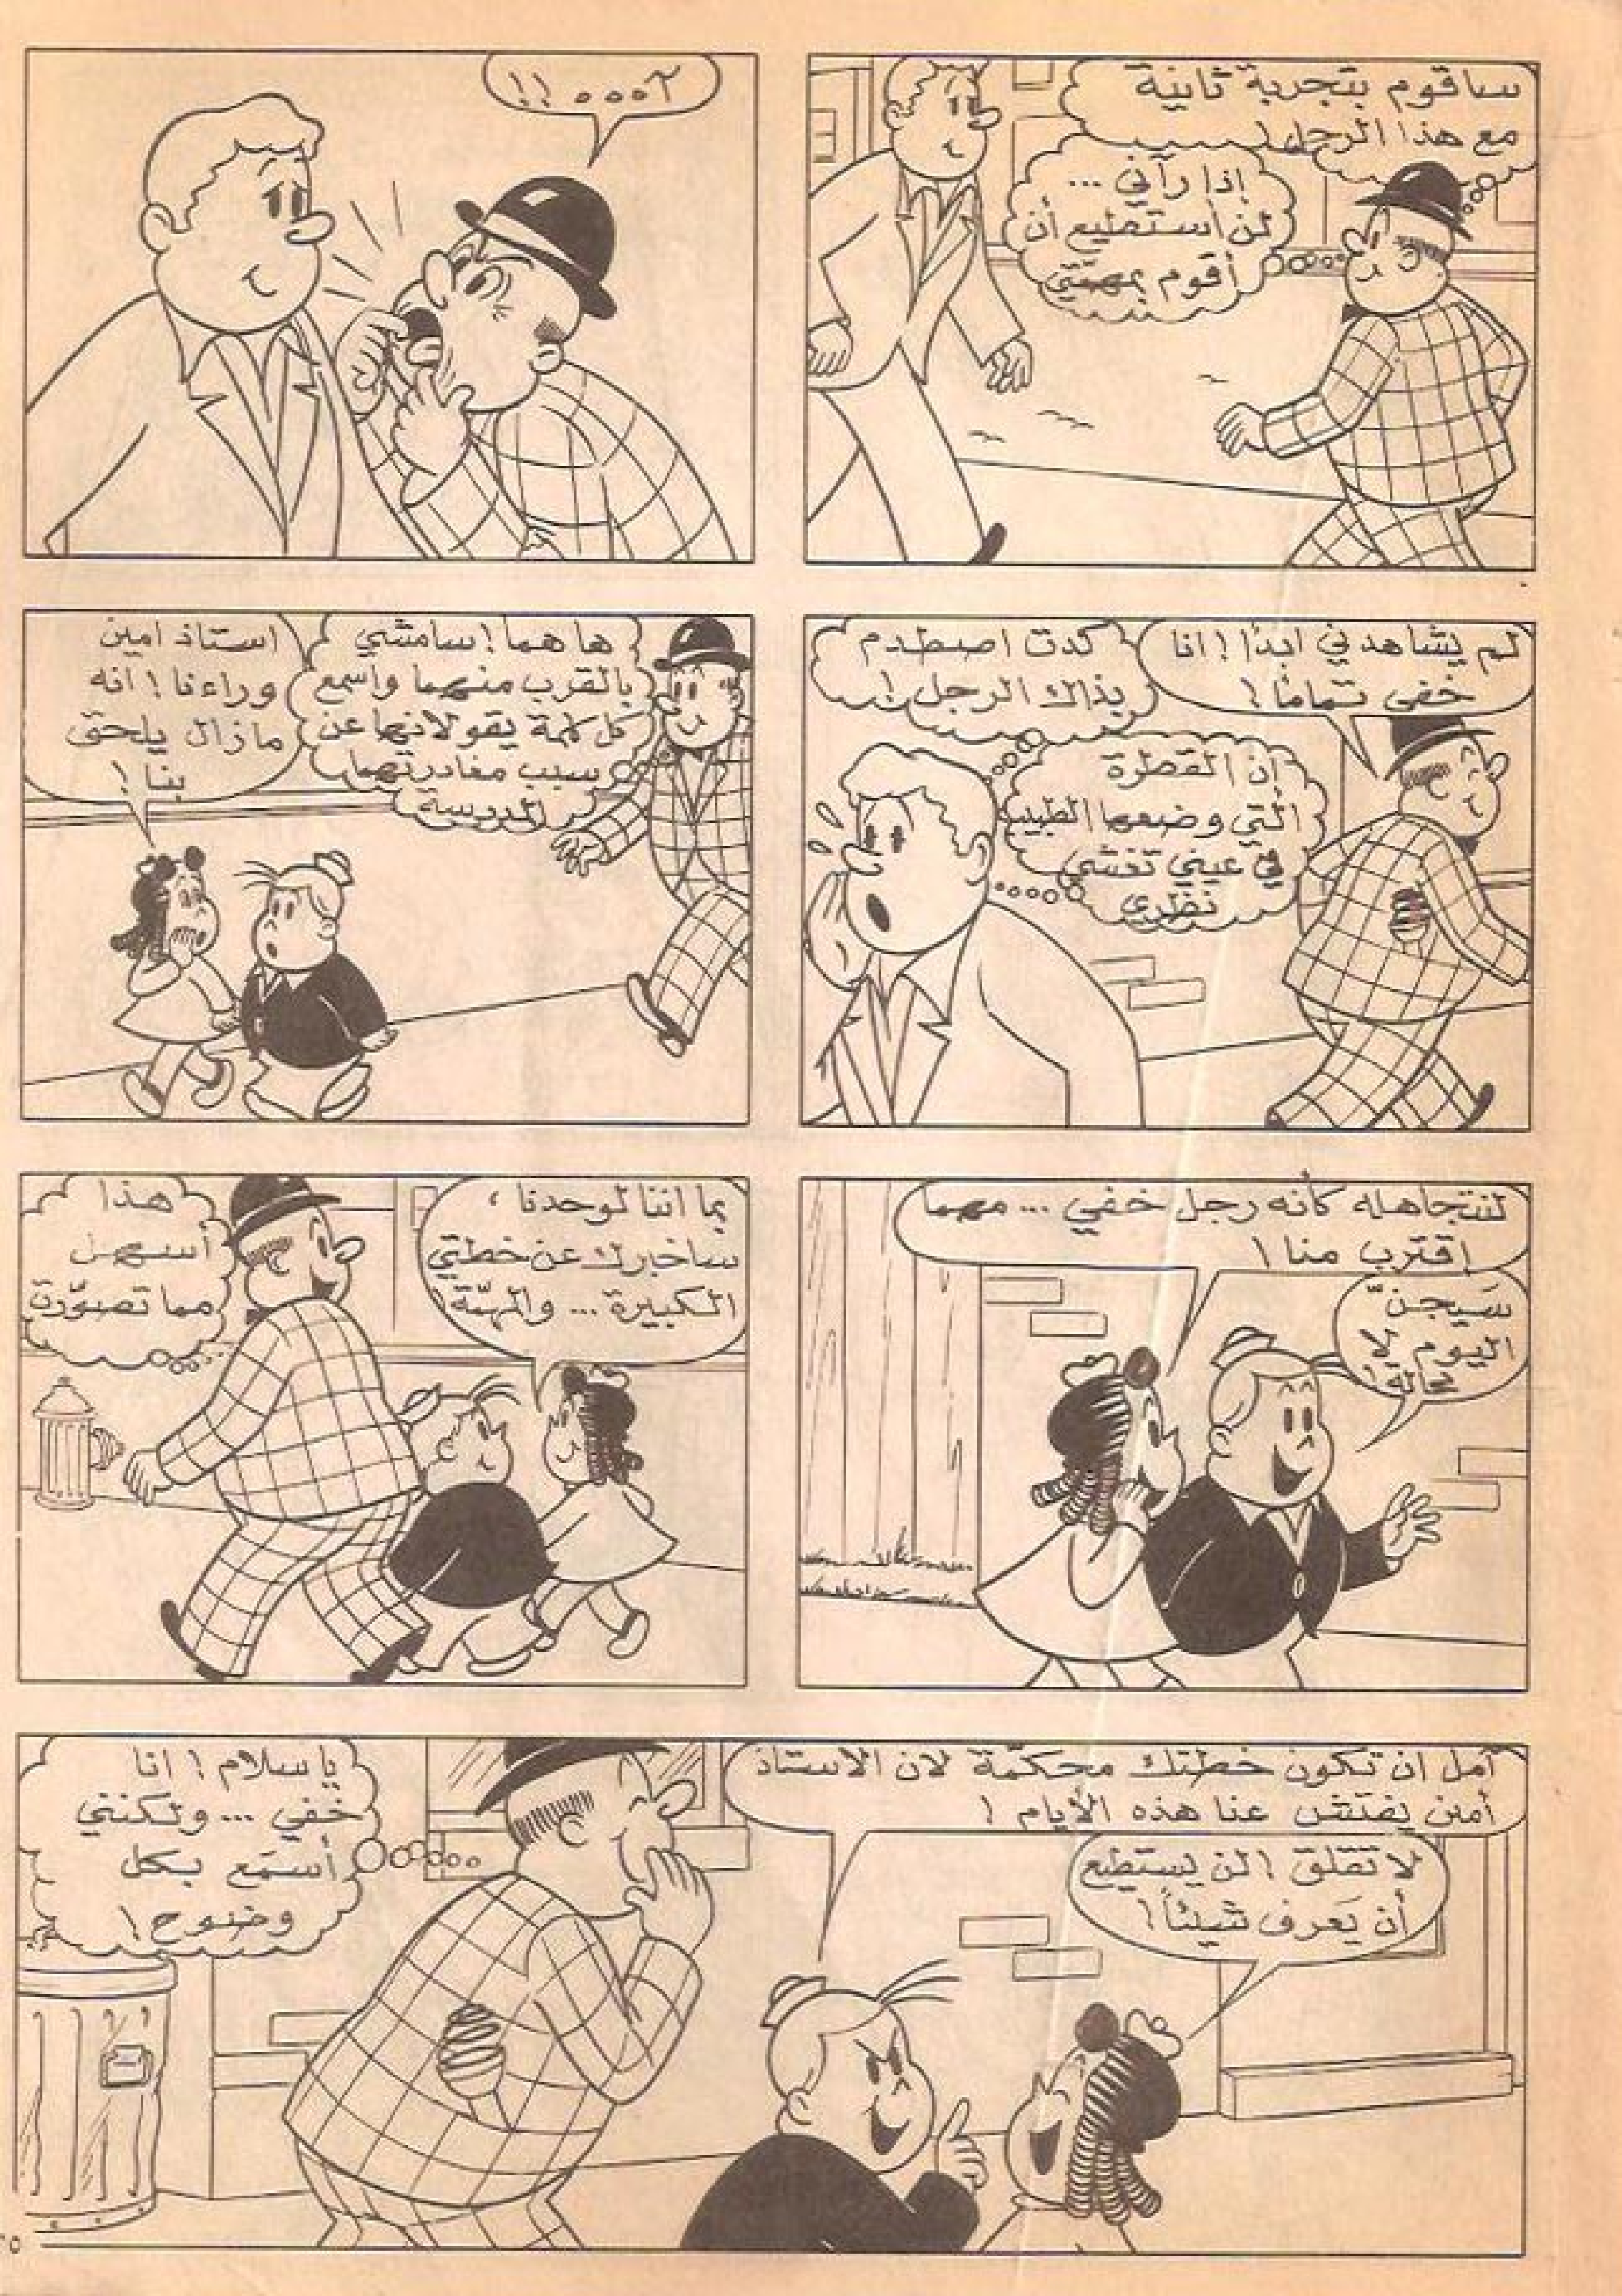 ساقوم بتجربة ثانية
مع هذا الرجل!
إذا رآني ...
لن أستطيع أن
أقوم بمهمّتي
آ ٥٥٥ !!
لم يشاهدني ابدًا! انا
خفي تمامًا!
كدت اصطدم
بذاك الرجل!
إن القطرة
التي وضعها الطبيب
في عيني تغشي
نظري
ها هما! سامشي
بالقرب منهما واسمع
كل كلمة يقولانها عن
سبب مغادرتهما
المدرسة
استاذ امين
وراءنا! انه
مازال يلحق
بنا!
لنتجاهله كأنه رجل خفي ... مهما
اقترب منا!
سَيجنّ
اليوم لا
محالة!
بما اننا لوحدنا ،
ساخبرك عن خطتي
الكبيرة ... والمهمّة!
هذا
أسهل
مما تصوّرت
آمل ان تكون خطتك محكمّة لان الاستاذ
أمين يفتش عنا هذه الأيام !
لا تقلق! لن يستطيع
أن يَعرف شيئاً!
يا سلام ! انا
خفي ... ولكنني
أسمَع بكل
وضوح!